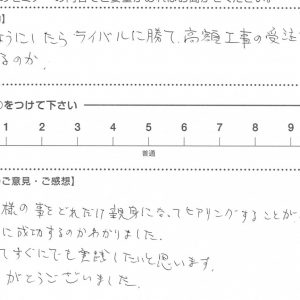 ようにしたらライバルに勝て、高額工事の受注
るのか。
○をつけて下さい
1 2 3 4 5 6 7 8 9
普通
ご意見・ご感想】
様の事をどれだけ親身になってヒアリングすることが
に成功するのかわかりました。
てすぐにでも実践したいと思います。
がとうございました。